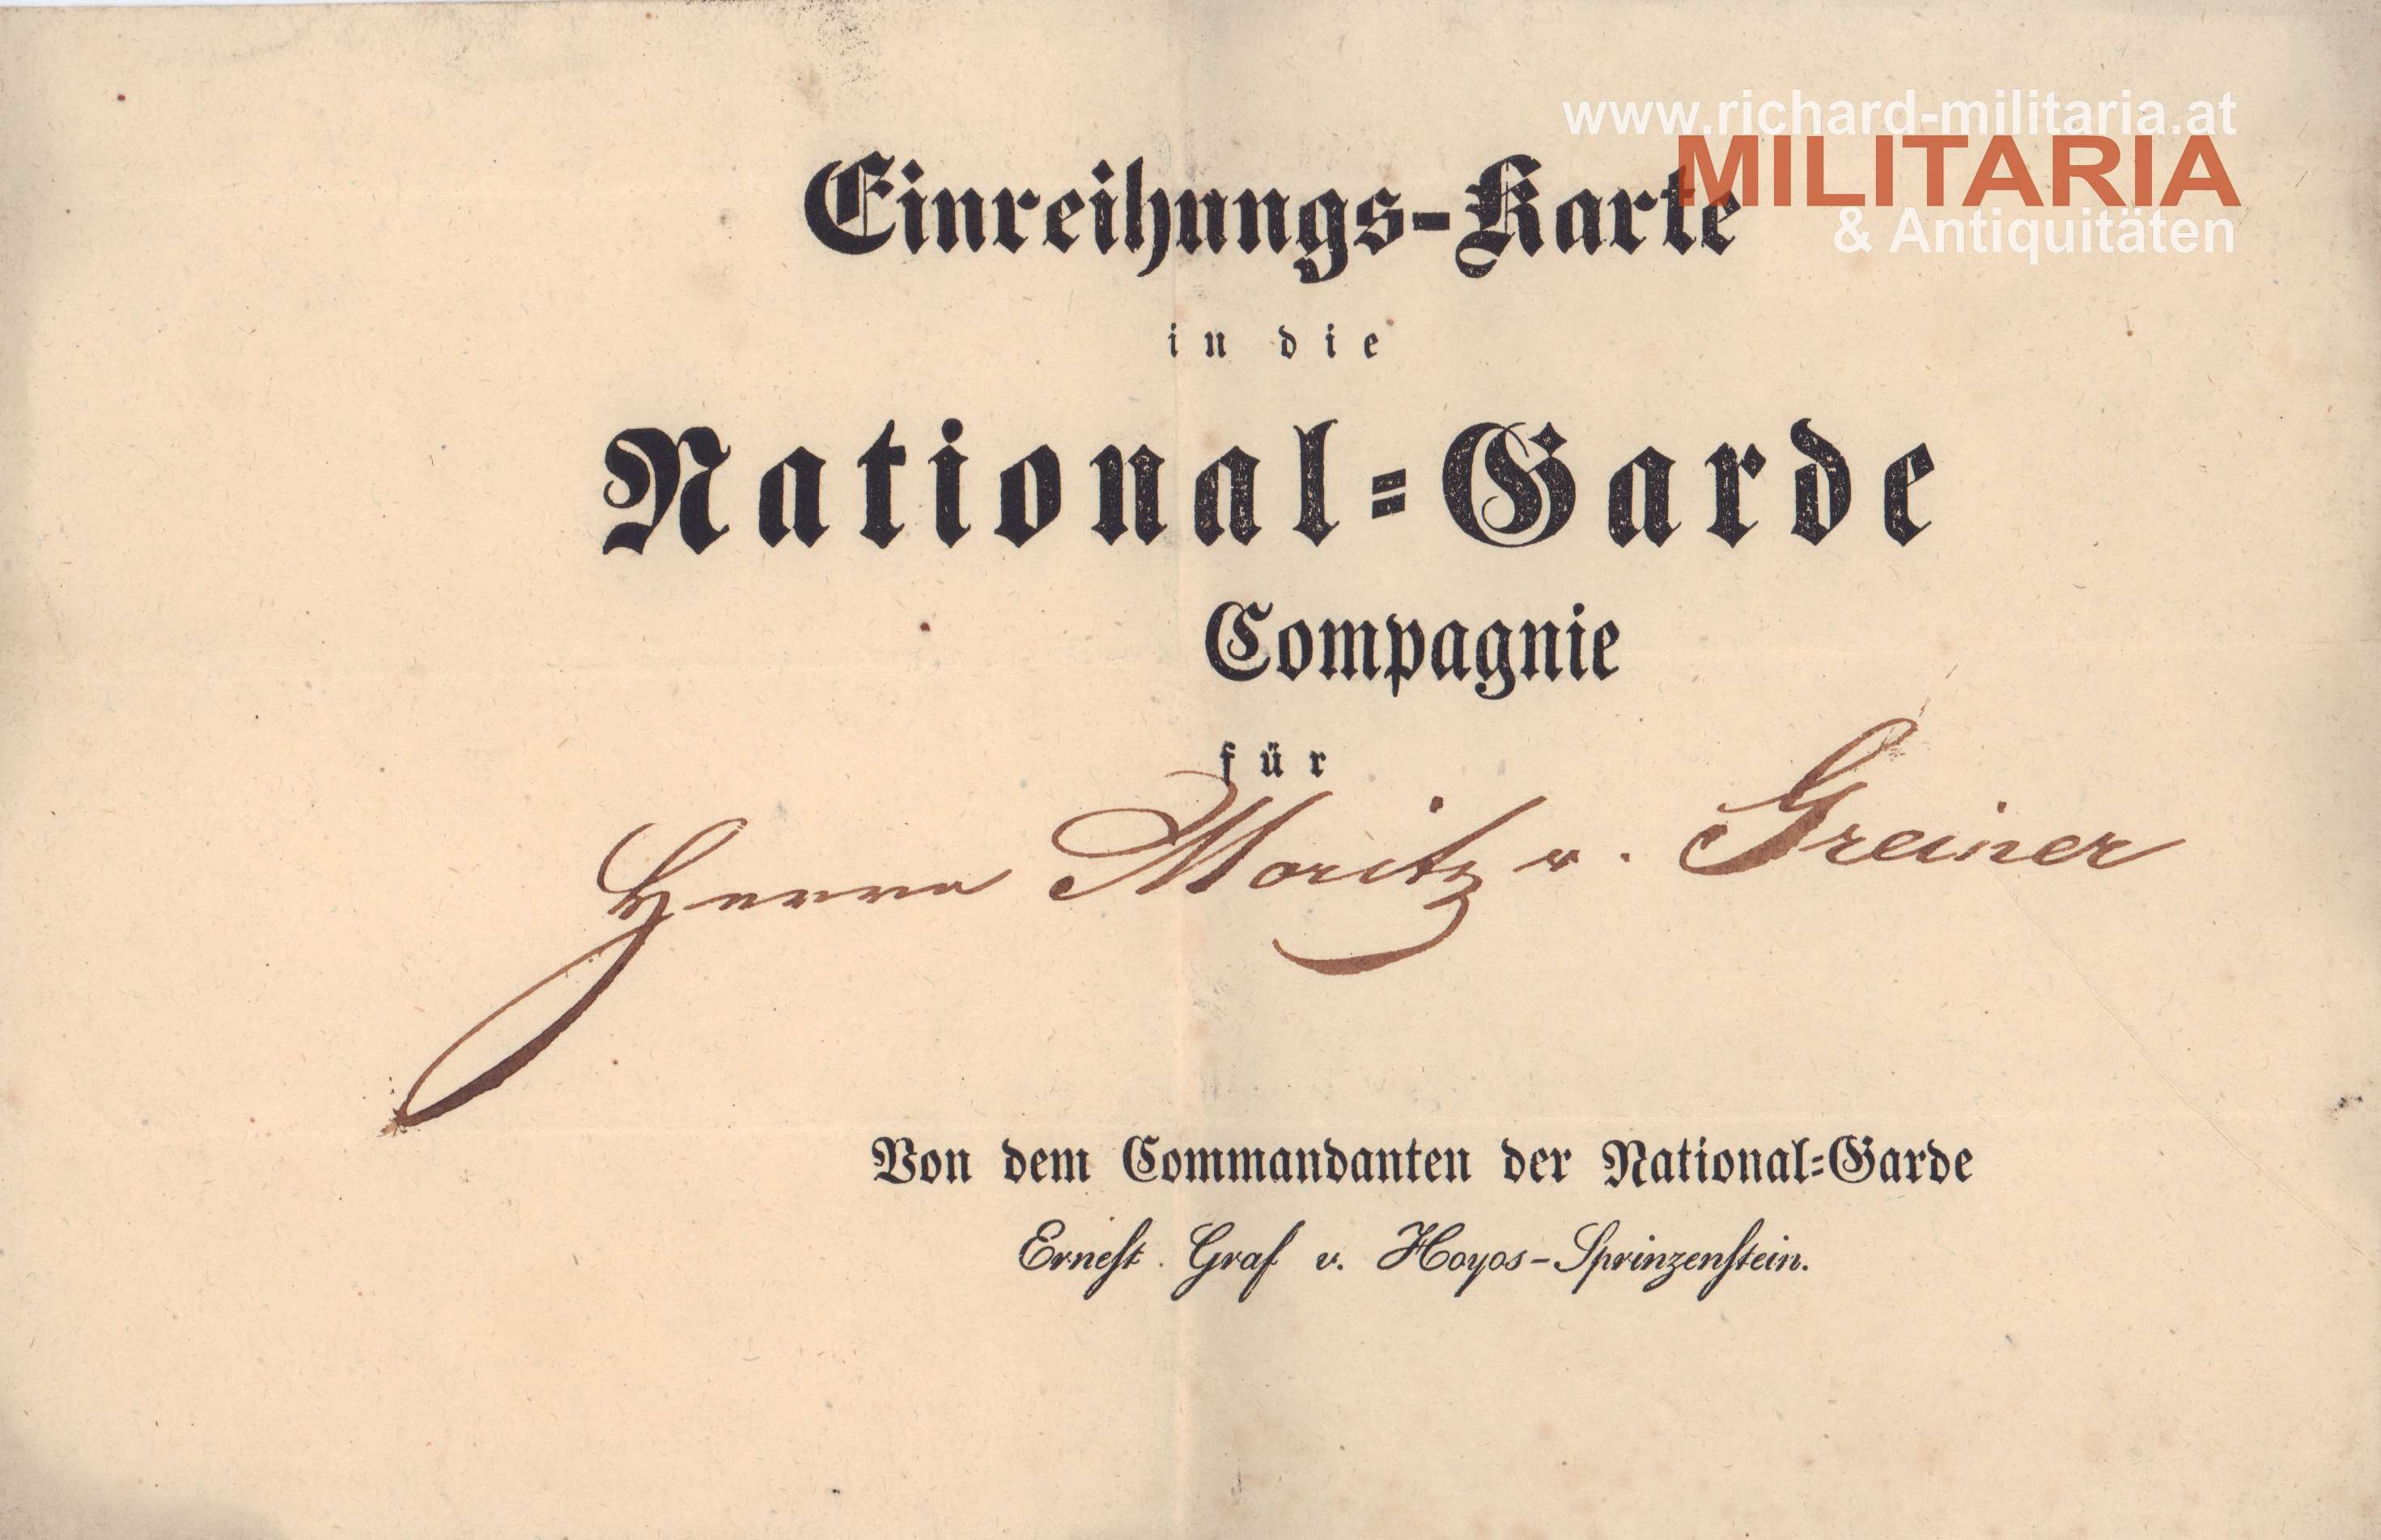 www.richard-militaria.at
MILITARIA
& Antiquitäten
Einreihungs-Karte
in die
National-Garde
Compagnie
für
Herrn Moritz v. Greiner
Von dem Commandanten der National-Garde
Ernest Graf v. Hoyos-Sprinzenstein.